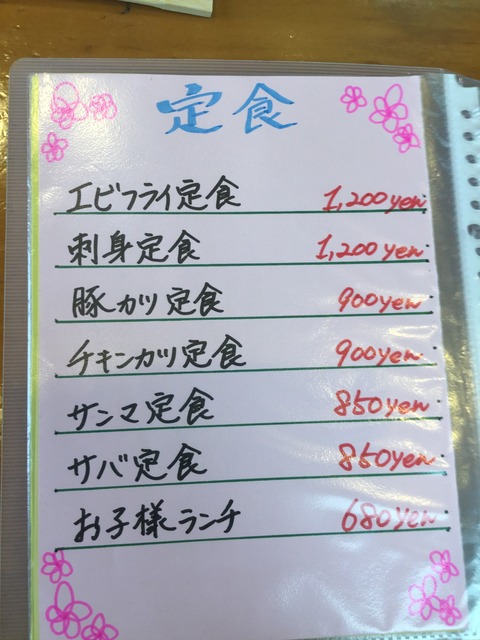 定食
エビフライ定食 1,200yen
刺身定食 1,200yen
豚カツ定食 900yen
チキンカツ定食 900yen
サンマ定食 850yen
サバ定食 850yen
お子様ランチ 680yen